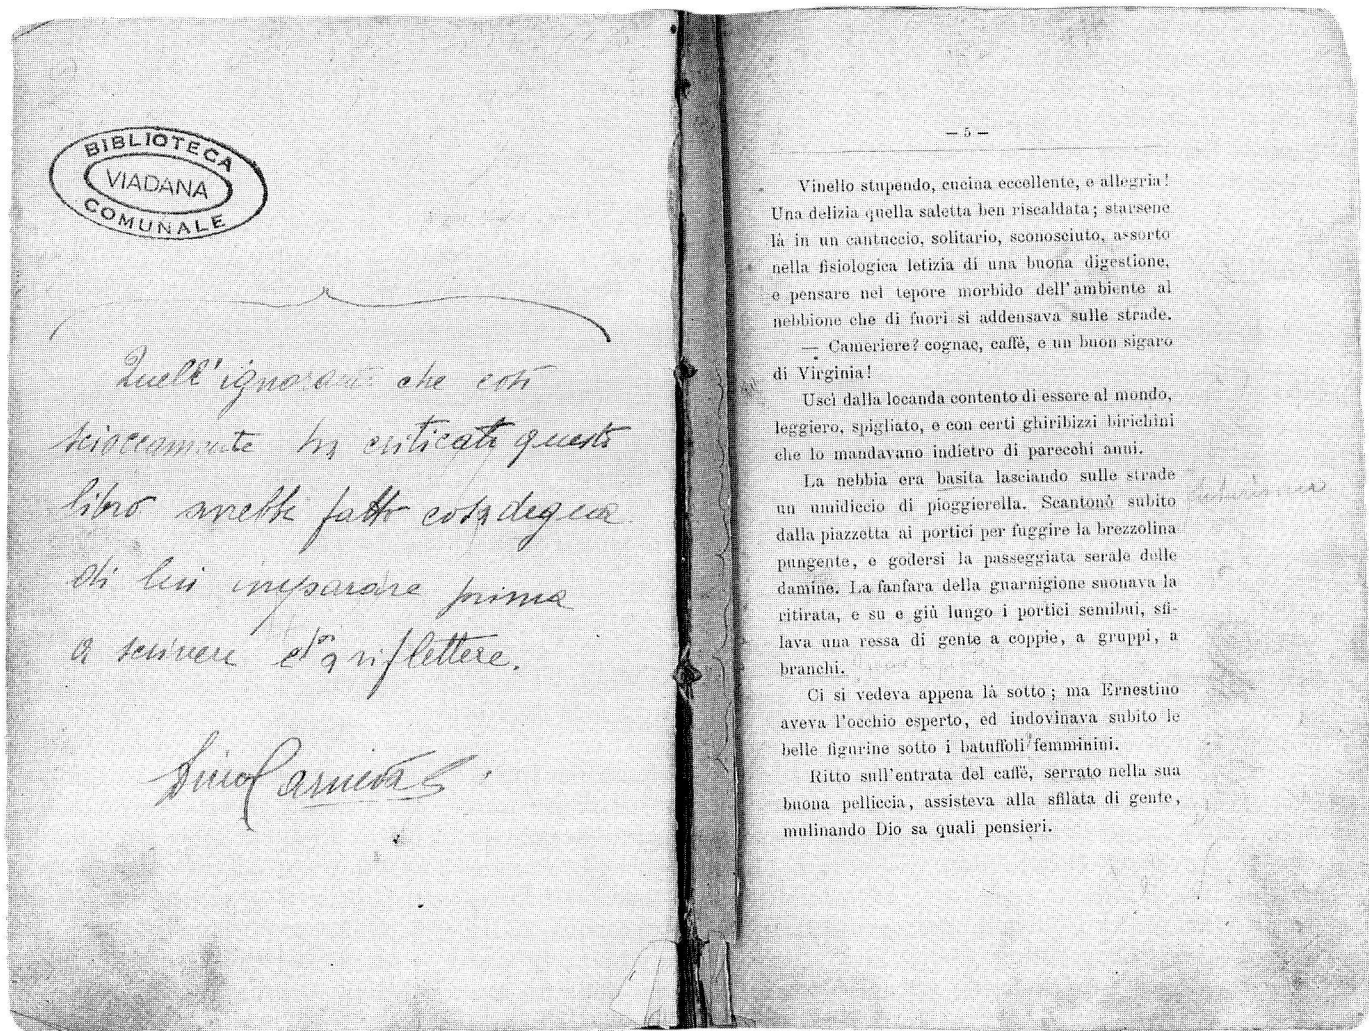 BIBLIOTECA
VIADANA
COMUNALE
Quell'ignorante che così
scioccamente ha criticato questo
libro avrebbe fatto cosa degna
di lui imparare prima
a scrivere e a riflettere.
— 5 —
Vinello stupendo, cucina eccellente, e allegria!
Una delizia quella saletta ben riscaldata; starsene
là in un cantuccio, solitario, sconosciuto, assorto
nella fisiologica letizia di una buona digestione,
e pensare nel tepore morbido dell'ambiente al
nebbione che di fuori si addensava sulle strade.
— Cameriere? cognac, caffè, e un buon sigaro
di Virginia!
Uscì dalla locanda contento di essere al mondo,
leggiero, spigliato, e con certi ghiribizzi birichini
che lo mandavano indietro di parecchi anni.
La nebbia era basita lasciando sulle strade
un umidiccio di pioggierella. Scantonò subito
dalla piazzetta ai portici per fuggire la brezzolina
pungente, e godersi la passeggiata serale delle
damine. La fanfara della guarnigione suonava la
ritirata, e su e giù lungo i portici semibui, sfi-
lava una ressa di gente a coppie, a gruppi, a
branchi.
Ci si vedeva appena là sotto; ma Ernestino
aveva l'occhio esperto, ed indovinava subito le
belle figurine sotto i batuffoli femminini.
Ritto sull'entrata del caffè, serrato nella sua
buona pelliccia, assisteva alla sfilata di gente,
mulinando Dio sa quali pensieri.